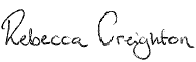 Rebecca Creighton